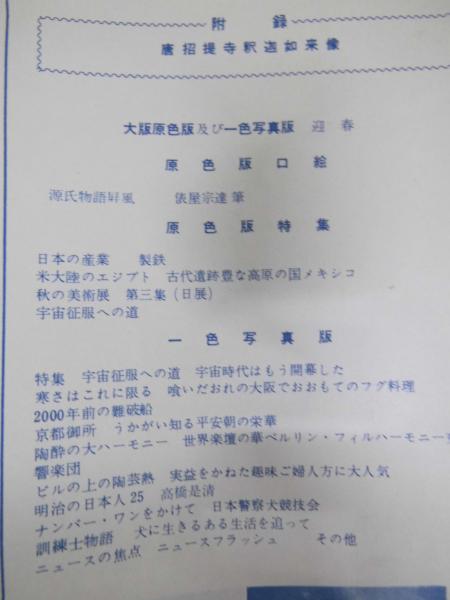 附 録
唐招提寺釈迦如来像
大版原色版及び一色写真版 迎 春
原色版口絵
源氏物語屏風 俵屋宗達筆
原色版特集
日本の産業 製鉄
米大陸のエジプト 古代遺跡豊な高原の国メキシコ
秋の美術展 第三集(日展)
宇宙征服への道
一色写真版
特集 宇宙征服への道 宇宙時代はもう開幕した
寒さはこれに限る 喰いだおれの大阪でおおもてのフグ料理
2000年前の難破船
京都御所 うかがい知る平安朝の栄華
陶酔の大ハーモニー 世界楽壇の華ベルリン・フィルハーモニー
響楽団
ビルの上の陶芸熱 実益をかねた趣味ご婦人方に大人気
明治の日本人25 高橋是清
ナンバー・ワンをかけて 日本警察犬競技会
訓練士物語 犬に生きるある生活を追って
ニュースの焦点 ニュースフラッシュ その他